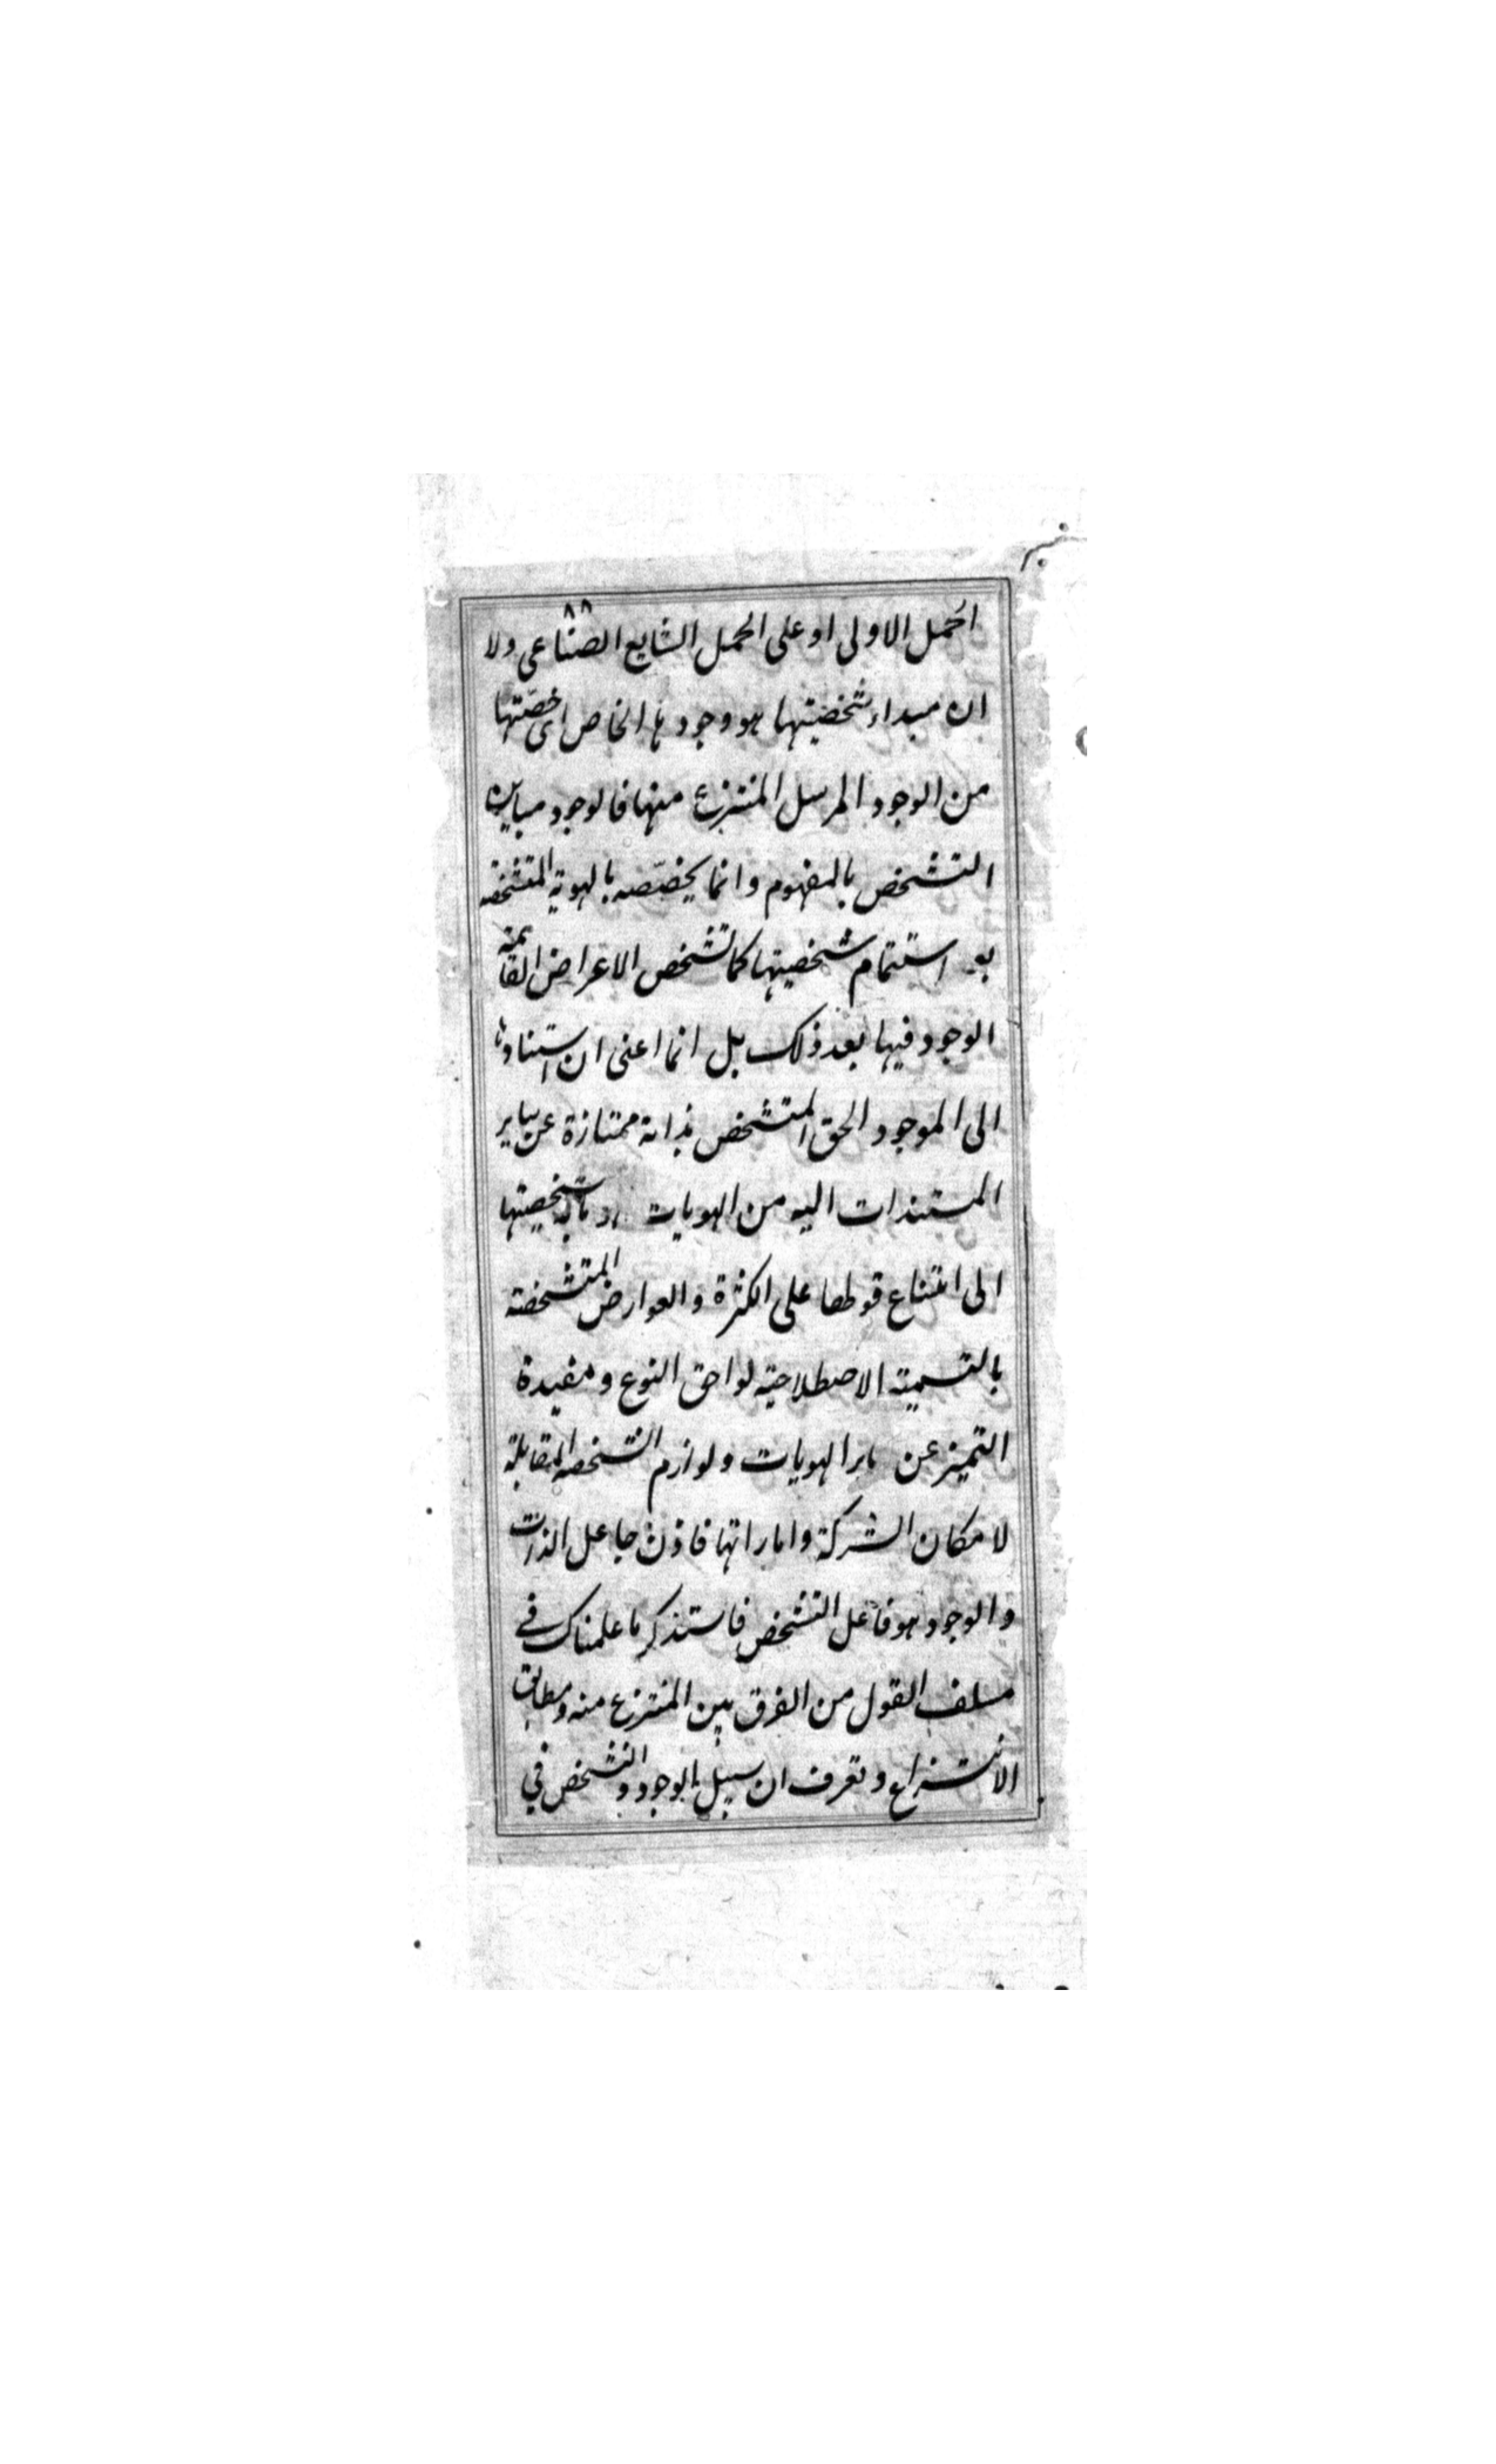 ٨٨
الحمل الاولى او على الحمل الشايع الصناعى ولا
ان مبداء شخصيتها هو وجود ها الخاص اى حصّتها
من الوجود المرسل المنتزع منها فالوجود مباين
التشخص بالمفهوم وانما يخصّصه بالهوية المتشخصة
بعد استتمام شخصيتها كما تشخص الاعراض القائمة
الوجود فيها بعد ذلك بل انما اعنى ان استنادها
الى الموجود الحق المتشخص بذاته ممتازة عن ساير
المستندات اليه من الهويات شخصيتها
الى امتناع قولها على الكثرة والعوارض المتشخصة
بالتسمية الاصطلاحية لواحق النوع ومفيدة
التميز عن ساير الهويات ولوازم التشخص المقابلة
لامكان الشركة واماراتها فاذن جاعل الذات
والوجود هو فاعل التشخص فاستذكر ما علمناك فى
سلف القول من الفرق بين المنتزع منه ومطابق
الانتزاع وتعرف ان سبيل الوجود والتشخص فى